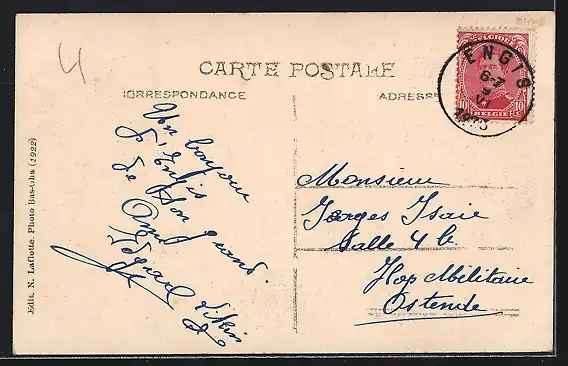 4
CARTE POSTALE
CORRESPONDANCE
ADRESSE
BELGIQUE
ENGIS
6-7
10
10
BELGIE
Un bonjour
d'Engis
de ton grand
Ami
Monsieur
Jorges Isaie
Salle 4 b.
Hop Militaire
Ostende
Edit. N. Laflotte. Photo Bas-Oha (1922)